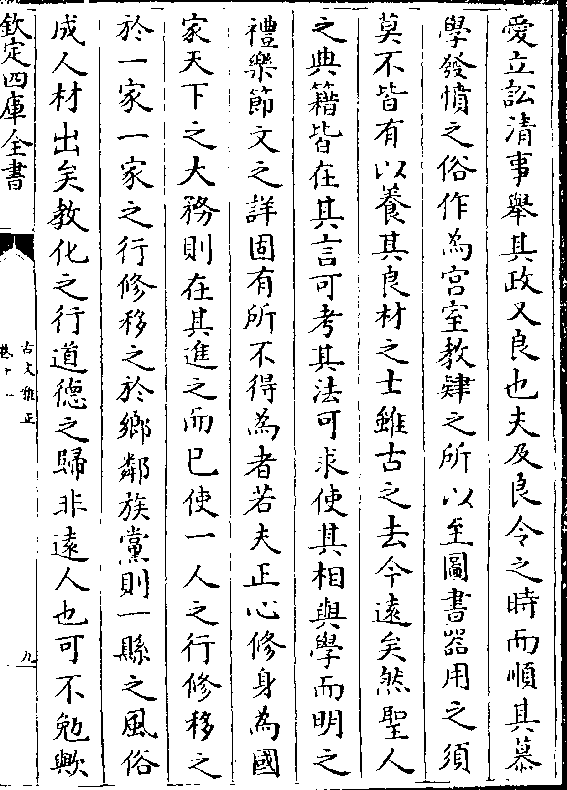 愛立訟清事舉其政又良也夫及良令之時而順其慕
學發憤之俗作為宫室教肄之所以至圖書器用之須
莫不皆有以養其良材之士雖古之去今遠矣然聖人
之典籍皆在其言可考其法可求使其相與學而明之
禮樂節文之詳固有所不得為者若夫正心修身為國
家天下之大務則在其進之而已使一人之行修移之
於一家一家之行修移之於鄉鄰族黨則一縣之風俗
成人材出矣教化之行道德之歸非遠人也可不勉歟
欽定四庫全書
古文雅正
卷十一
九